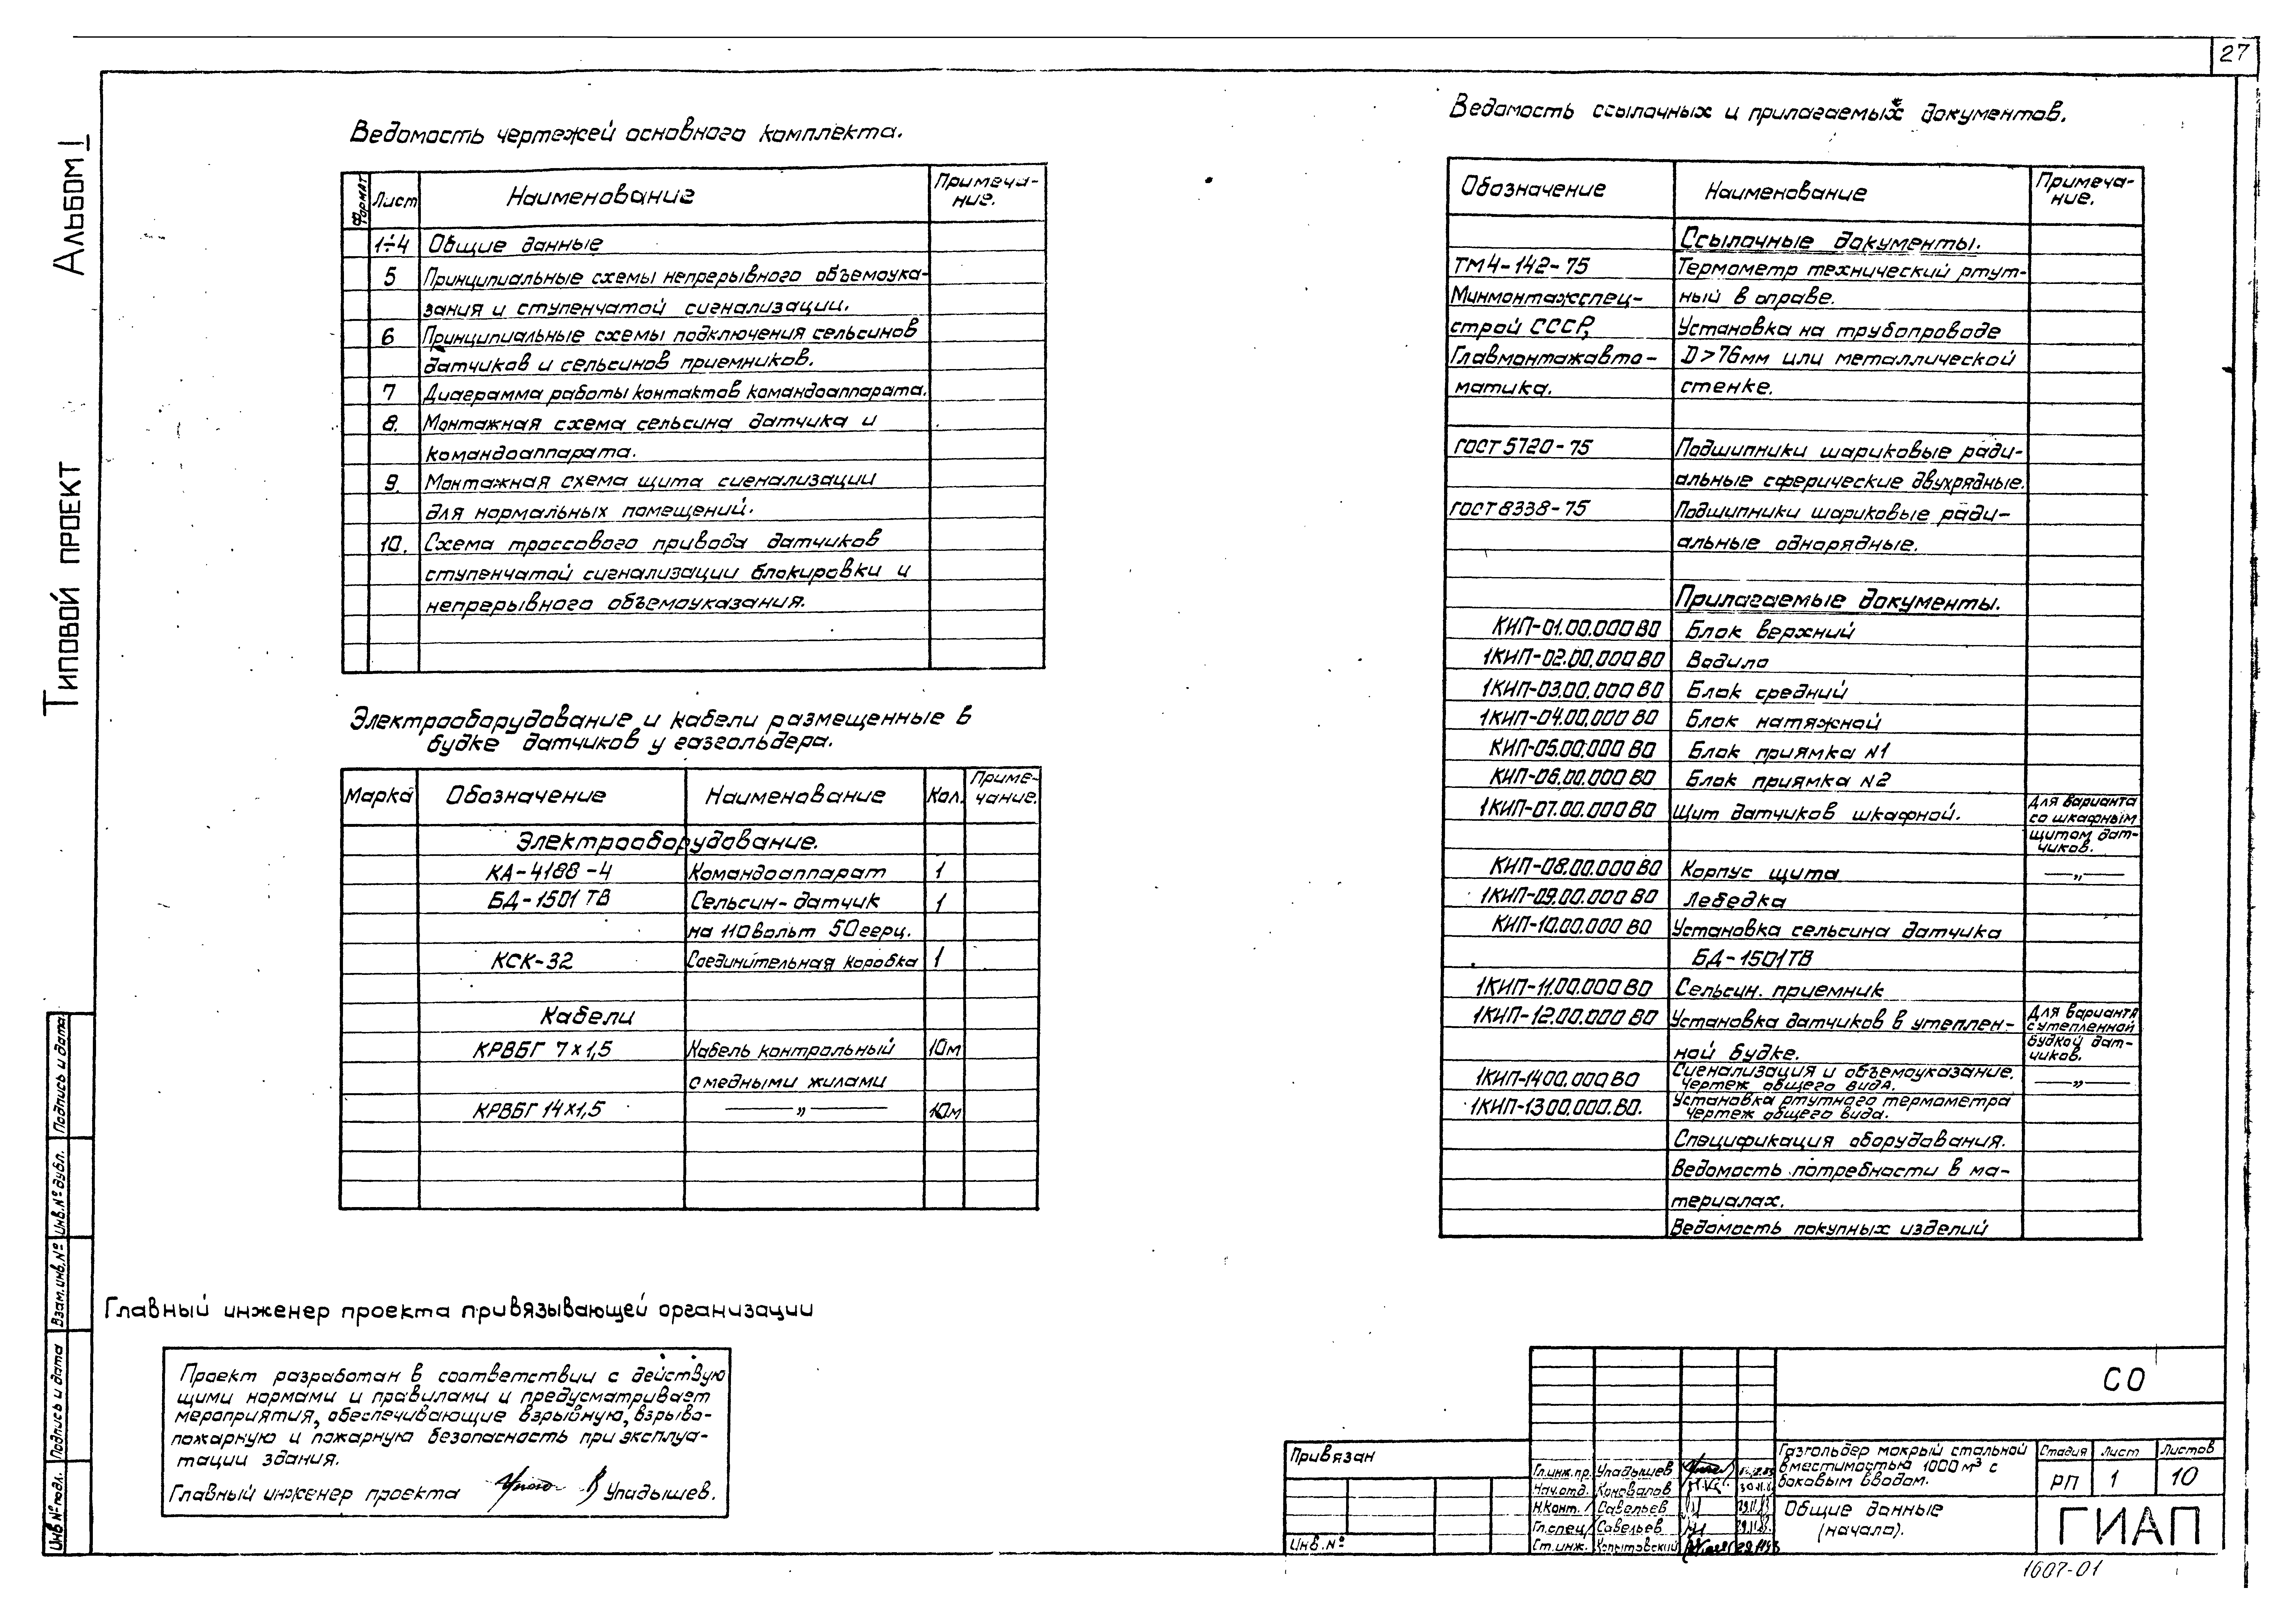 27
Альбом I
Типовой проект
Ведомость чертежей основного комплекта.
Формат Лист Наименование Примеча-
ние.
1÷4 Общие данные
5 Принципиальные схемы непрерывного объемоука-
зания и ступенчатой сигнализации.
6 Принципиальные схемы подключения сельсинов
датчиков и сельсинов приемников.
7 Диаграмма работы контактов командоаппарата.
8. Монтажная схема сельсина датчика и
командоаппарата.
9. Монтажная схема щита сигнализации
для нормальных помещений.
10. Схема троссового привода датчиков
ступенчатой сигнализации блокировки и
непрерывного объемоуказания.
Электрооборудование и кабели размещенные в
будке датчиков у газгольдера.
Марка Обозначение Наименование Кол. Приме-
чание.
Электрооборудование.
КА-4188-4 Командоаппарат 1
БД-1501 ТВ Сельсин-датчик 1
на 110 вольт 50 герц.
КСК-32 Соединительная коробка 1
Кабели
КРВБГ 7×1,5 Кабель контрольный 10м
с медными жилами
КРВБГ 14×1,5 —„— 10м
Главный инженер проекта привязывающей организации
Проект разработан в соответствии с действую
щими нормами и правилами и предусматривает
мероприятия, обеспечивающие взрывную, взрыво-
пожарную и пожарную безопасность при эксплуа-
тации здания.
Главный инженер проекта В Упадышев.
Ведомость ссылочных и прилагаемых* документов.
Обозначение Наименование Примеча-
ние.
Ссылочные документы.
ТМ4-142-75 Термометр технический ртут-
Минмонтажспец- ный в оправе.
строй СССР, Установка на трубопроводе
Главмонтажавто- D>76мм или металлической
матика. стенке.
ГОСТ 5720-75 Подшипники шариковые ради-
альные сферические двухрядные.
ГОСТ 8338-75 Подшипники шариковые ради-
альные однорядные.
Прилагаемые документы.
КИП-01.00.000 ВО Блок верхний
1КИП-02.00.000 ВО Водило
1КИП-03.00.000 ВО Блок средний
1КИП-04.00.000 ВО Блок натяжной
КИП-05.00.000 ВО Блок приямка N1
КИП-06.00.000 ВО Блок приямка N2
1КИП-07.00.000 ВО Щит датчиков шкафной. Для варианта
со шкафным
щитом дат-
чиков.
КИП-08.00.000 ВО Корпус щита —„—
1КИП-09.00.000 ВО Лебедка
КИП-10.00.000 ВО Установка сельсина датчика
БД-1501ТВ
1КИП-11.00.000 ВО Сельсин. приемник
1КИП-12.00.000 ВО Установка датчиков в утеплен- Для варианта
с утепленной
ной будке. будкой дат-
чиков.
1КИП-1400.000 ВО Сигнализация и объемоуказание.
Чертеж общего вида. —„—
1КИП-1300.000.ВО. Установка ртутного термометра
Чертеж общего вида.
Спецификация оборудования.
Ведомость потребности в ма-
териалах.
Ведомость покупных изделий
Подпись и дата
Инв.№ дубл.
Взам.инв.№
Подпись и дата
Инв № подл.
Привязан
Инв.№
Гл.инж.пр. Упадышев
Нач.отд. Коновалов
Н.конт. Савельев
Гл.спец. Савельев
Ст.инж. Копытовский
СО
Газгольдер мокрый стальной
вместимостью 1000 м³ с
боковым вводом.
Стадия Лист Листов
РП 1 10
Общие данные
(начало).
ГИАП
1607-01